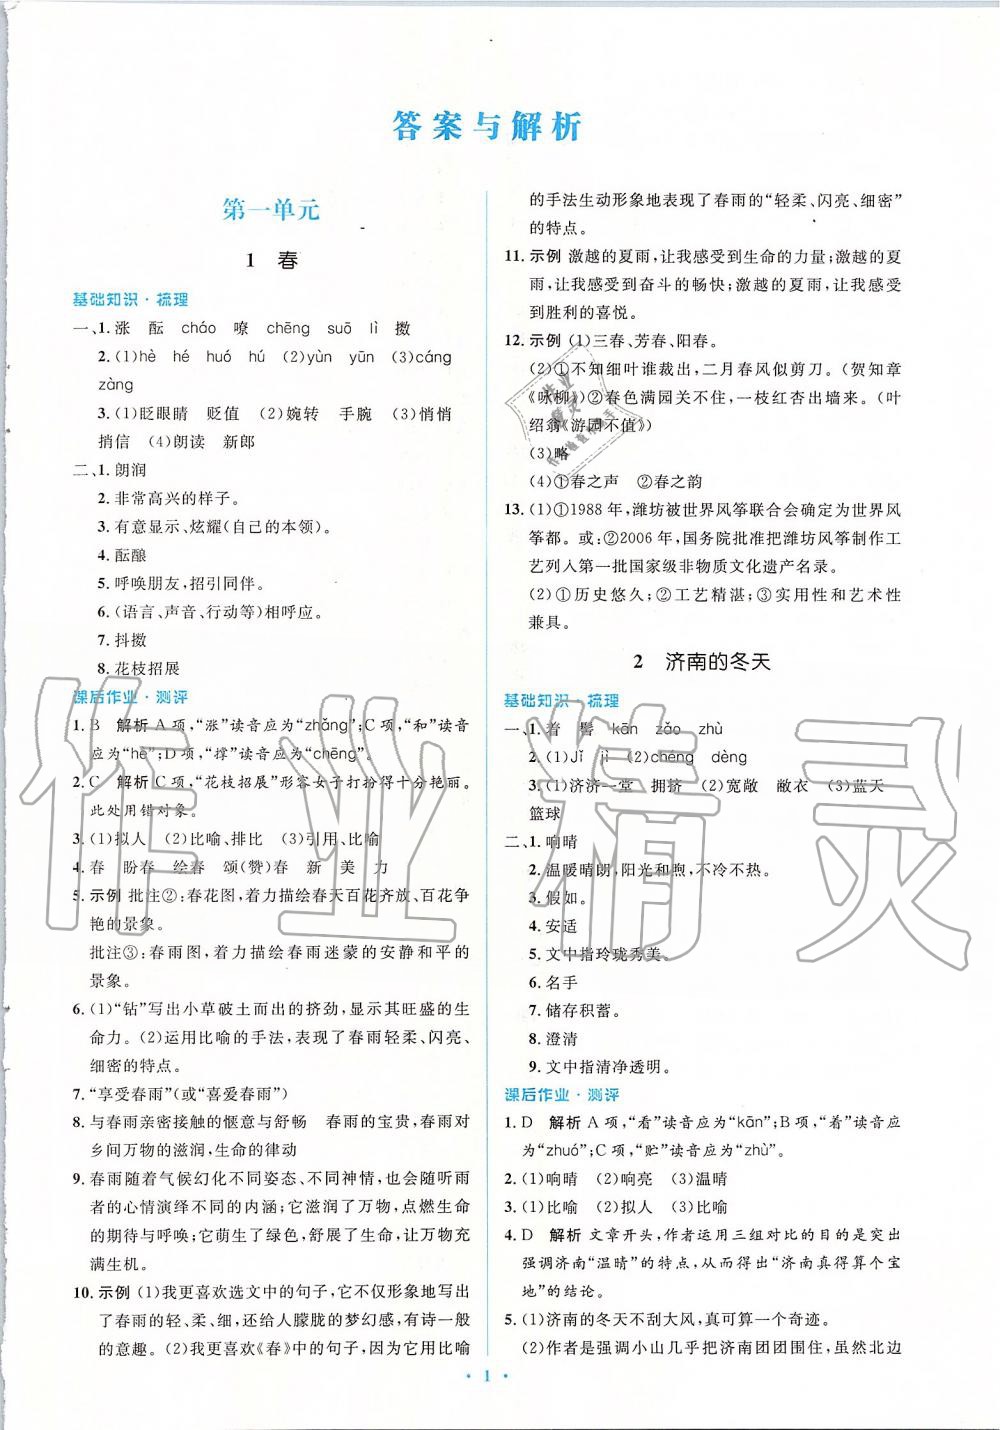 答案与解析
第一单元
1 春
基础知识·梳理
一、1. 涨 酝 cháo 嘹 chēng suō lì 擞
2. (1)hè hé huó hú (2)yùn yūn (3)cáng
zàng
3. (1)眨眼睛 贬值 (2)婉转 手腕 (3)悄悄
捎信 (4)朗读 新郎
二、1. 朗润
2. 非常高兴的样子。
3. 有意显示、炫耀(自己的本领)。
4. 酝酿
5. 呼唤朋友,招引同伴。
6. (语言、声音、行动等)相呼应。
7. 抖擞
8. 花枝招展
课后作业·测评
1. B 解析 A项,“涨”读音应为“zhǎng”;C项,“和”读音
应为“hè”;D项,“撑”读音应为“chēng”。
2. C 解析 C项,“花枝招展”形容女子打扮得十分艳丽。
此处用错对象。
3. (1)拟人 (2)比喻、排比 (3)引用、比喻
4. 春 盼春 绘春 颂(赞)春 新 美 力
5. 示例 批注②:春花图,着力描绘春天百花齐放、百花争
艳的景象。
批注③:春雨图,着力描绘春雨迷蒙的安静和平的
景象。
6. (1)“钻”写出小草破土而出的挤劲,显示其旺盛的生
命力。(2)运用比喻的手法,表现了春雨轻柔、闪亮、
细密的特点。
7. “享受春雨”(或“喜爱春雨”)
8. 与春雨亲密接触的惬意与舒畅 春雨的宝贵,春雨对
乡间万物的滋润,生命的律动
9. 春雨随着气候幻化不同姿态、不同神情,也会随听雨
者的心情演绎不同的内涵;它滋润了万物,点燃生命
的期待与呼唤;它萌生了绿色,舒展了生命,让万物充
满生机。
10. 示例 (1)我更喜欢选文中的句子,它不仅形象地写出
了春雨的轻、柔、细,还给人朦胧的梦幻感,有诗一般
的意趣。(2)我更喜欢《春》中的句子,因它用比喻
的手法生动形象地表现了春雨的“轻柔、闪亮、细密”
的特点。
11. 示例 激越的夏雨,让我感受到生命的力量;激越的夏
雨,让我感受到奋斗的畅快;激越的夏雨,让我感受
到胜利的喜悦。
12. 示例 (1)三春、芳春、阳春。
(2)①不知细叶谁裁出,二月春风似剪刀。(贺知章
《咏柳》)②春色满园关不住,一枝红杏出墙来。(叶
绍翁《游园不值》)
(3)略
(4)①春之声 ②春之韵
13. (1)①1988年,潍坊被世界风筝联合会确定为世界风
筝都。或:②2006年,国务院批准把潍坊风筝制作工
艺列入第一批国家级非物质文化遗产名录。
(2)①历史悠久;②工艺精湛;③实用性和艺术性
兼具。
2 济南的冬天
基础知识·梳理
一、1. 着 髻 kān zǎo zhù
2. (1)jǐ jì (2)chéng dèng
3. (1)济济一堂 拥挤 (2)宽敞 敝衣 (3)蓝天
篮球
二、1. 响晴
2. 温暖晴朗,阳光和煦,不冷不热。
3. 假如。
4. 安适
5. 文中指玲珑秀美。
6. 名手
7. 储存积蓄。
8. 澄清
9. 文中指清净透明。
课后作业·测评
1. D 解析 A项,“看”读音应为“kān”;B项,“着”读音应
为“zhuó”;C项,“贮”读音应为“zhù”。
2. (1)响晴 (2)响亮 (3)温晴
3. (1)比喻 (2)拟人 (3)比喻
4. D 解析 文章开头,作者运用三组对比的目的是突出
强调济南“温晴”的特点,从而得出“济南真得算个宝
地”的结论。
5. (1)济南的冬天不刮大风,真可算一个奇迹。
(2)作者是强调小山几乎把济南团团围住,虽然北边
· 1 ·
作业精灵